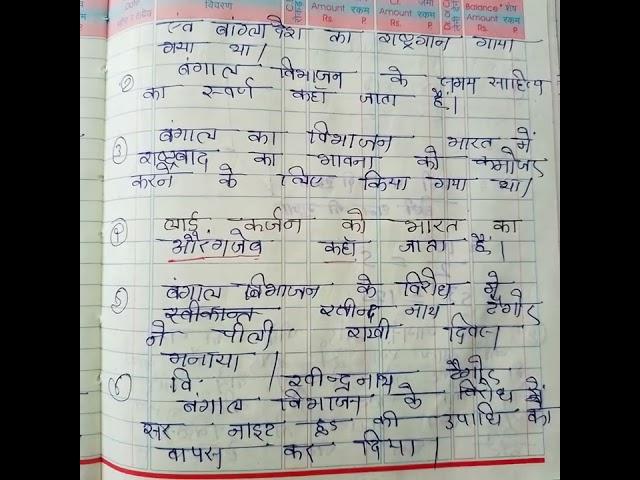 Date विवरण Amount रकम Cr. जमा Amount रकम Balance शेष Amount रकम
Rs. P. Rs. P. Rs. P.
एंव बांग्लादेश का राष्ट्रगान गाया
गया था।
② बंगाल विभाजन के समय साहित्य
का स्वर्ण कहाँ जाता है।
③ बंगाल का विभाजन भारत में
राष्ट्रवाद का भावना को कमजोर
करने के लिए किया गया था।
④ लार्ड कर्जन को भारत का
औरंगजेब कहाँ जाता है।
⑤ बंगाल विभाजन के विरोध में
रवीन्द्र नाथ टैगोर
ने पीली राखी दिवस
मनाया।
⑥ वि. रवीन्द्रनाथ टैगोर
बंगाल विभाजन के विरोध में
सर नाइट हुड की उपाधि का
वापस कर दिया।